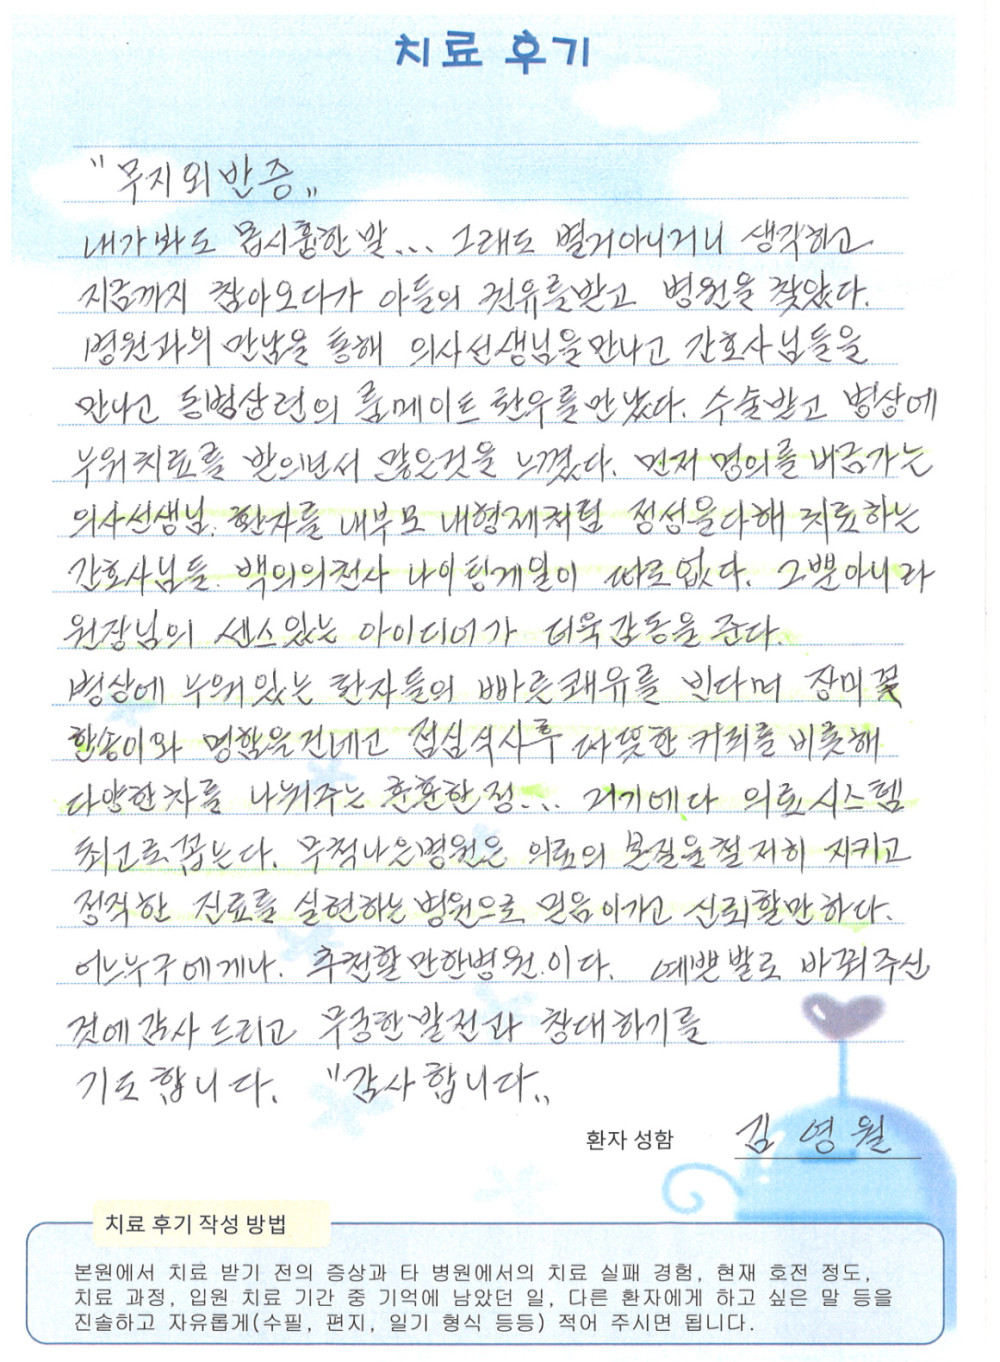 치료 후기
"무지외반증"
내가봐도 몹시흉한발... 그래도 별거아니거니 생각하고
지금까지 참아오다가 아들의 권유를받고 병원을 찾았다.
병원과의 만남을 통해 의사선생님을만나고 간호사님들을
만나고 동병상련의 룸메이트 환우를만났다. 수술받고 병상에
누워치료를 받으면서 많은것을 느꼈다. 먼저 명의를 버금가는
의사선생님. 환자를 내부모 내형제처럼 정성을다해 치료하는
간호사님들. 백의의천사 나이팅게일이 따로없다. 그뿐아니라
원장님의 센스있는 아이디어가 더욱감동을 준다.
병상에 누워있는 환자들의 빠른쾌유를 빈다며 장미꽃
한송이와 명함을건네고 점심식사후 따뜻한커피를비롯해
다양한차를 나눠주는 훈훈한정... 거기에다 의료시스템
최고로꼽는다. 무척나은병원은 의료의 본질을철저히 지키고
정직한 진료를 실현하는병원으로 믿음이가고 신뢰할만하다.
어느누구에게나. 추천할만한병원.이다. 예쁜발로 바꿔주신
것에감사드리고 무궁한발전과 창대하기를
기도합니다. "감사합니다"
환자 성함 김영월
치료 후기 작성 방법
본원에서 치료 받기 전의 증상과 타 병원에서의 치료 실패 경험, 현재 호전 정도,
치료 과정, 입원 치료 기간 중 기억에 남았던 일, 다른 환자에게 하고 싶은 말 등을
진솔하고 자유롭게(수필, 편지, 일기 형식 등등) 적어 주시면 됩니다.